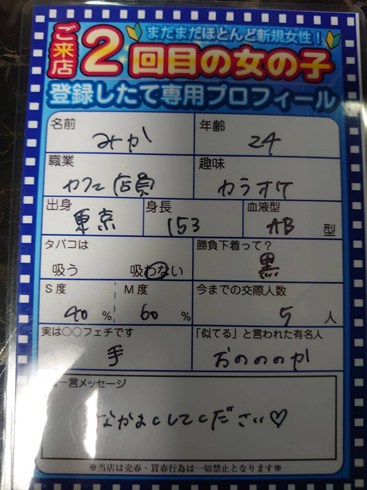 まだまだほとんど新規女性！
ご来店2回目の女の子
登録したて専用プロフィール
名前 みか 年齢 24
職業 カフェ店員 趣味 カラオケ
出身 東京 身長 153 血液型 AB 型
タバコは 吸う 吸わない 勝負下着って？ 黒
S度 40 % M度 60 % 今までの交際人数 5 人
実は〇〇フェチです 手 「似てる」と言われた有名人 おのののか
一言メッセージ
なかよくしてください♡
※当店は売春・買春行為は一切禁止となります※